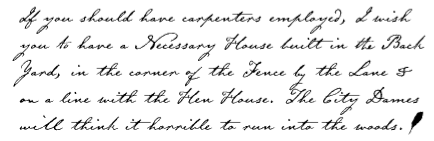 If you should have carpenters employed, I wish
you to have a Necessary House built in the Back
Yard, in the corner of the Fence by the Lane &
on a line with the Hen House. The City Dames
will think it horrible to run into the woods.